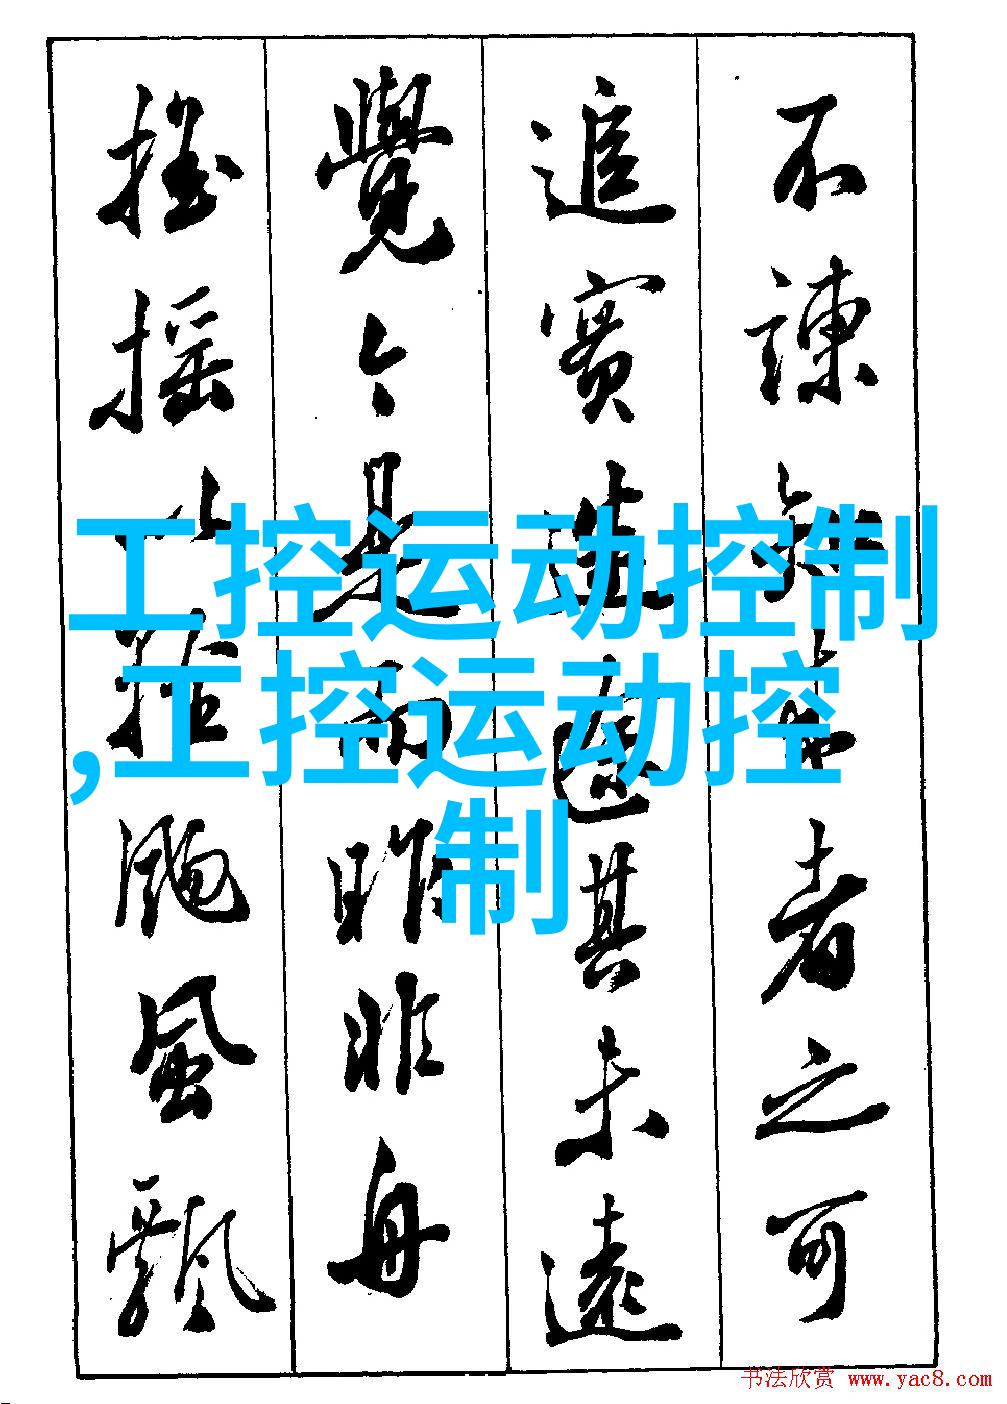 不諫知来者之可
追實迷途其未遠
覺今是而昨非舟
摇摇以輕颺風飄
工控运动控制
,工控运动控
制
书法欣赏 www.yac8.com